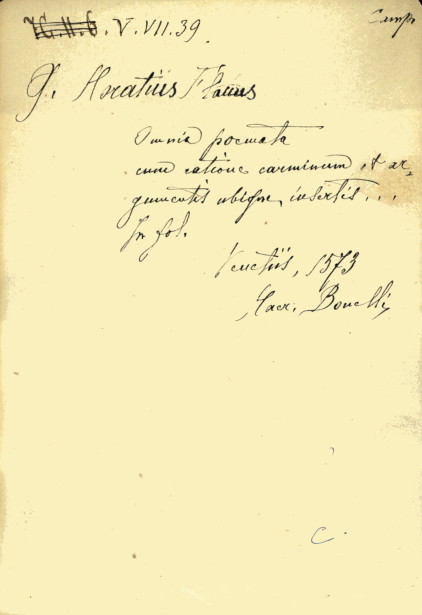 V. VII. 39.
Q. Horatius Flaccus
Omnia poemata
cum ratione carminum, et ar-
gumentis ubique insertis...
In fol.
Venetiis, 1573
Bonelli,
C.